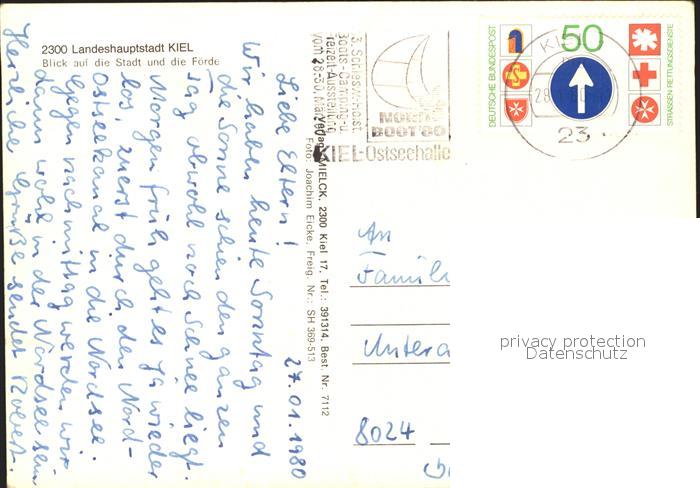 2300 Landeshauptstadt KIEL
Blick auf die Stadt und die Förde
27.01.1980
Liebe Eltern!
Wir haben heute Sonntag und
die Sonne schien den ganzen
Tag obwohl noch Schnee liegt.
Morgen früh geht es ja wieder
los, zuerst durch den Nord-
Ostseekanal in die Nordsee.
Gegen nachmittag werden wir
dann wohl in der Nordsee sein
Herzliche Grüße sendet Robert.
MIELCK, 2300 Kiel 17, Tel.: 391314, Best. Nr. 7112
Foto: Joachim Eicke, Freig. Nr.: SH 369-513
3. Schleswig-Holst.
Boots-, Camping- u.
Freizeit-Ausstellung
NORD
BOOT'80
KIEL-Ostseehalle
DEUTSCHE BUNDESPOST
50
STRASSEN-RETTUNGSDIENSTE
KIEL
23
An
Famili
Untera
8024
privacy protection
Datenschutz